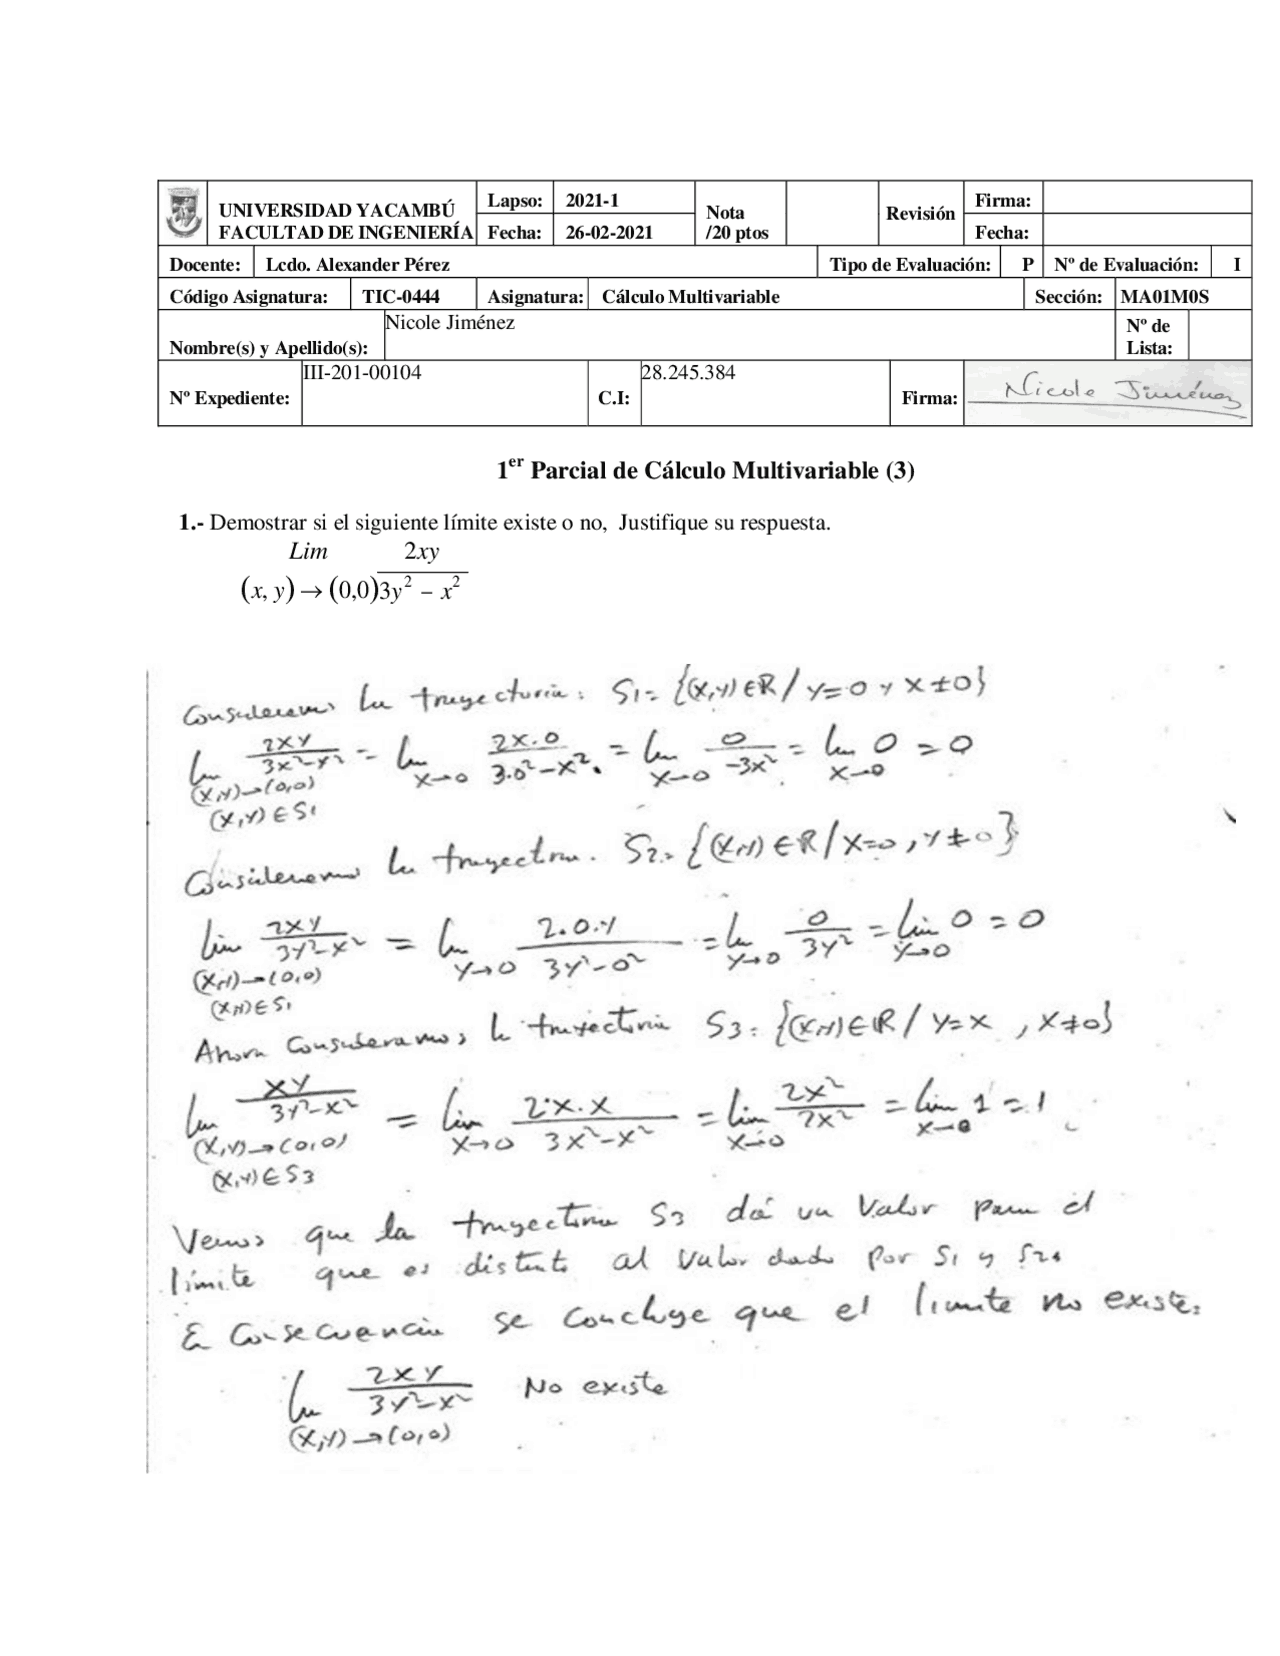 UNIVERSIDAD YACAMBÚ
FACULTAD DE INGENIERÍA
Lapso: 2021-1
Fecha: 26-02-2021
Nota
/20 ptos
Revisión
Firma:
Fecha:
Docente: Lcdo. Alexander Pérez Tipo de Evaluación: P Nº de Evaluación: I
Código Asignatura: TIC-0444 Asignatura: Cálculo Multivariable Sección: MA01M0S
Nombre(s) y Apellido(s): Nicole Jiménez Nº de Lista:
Nº Expediente: III-201-00104 C.I: 28.245.384 Firma: Nicole Jiménez
1er Parcial de Cálculo Multivariable (3)
1.- Demostrar si el siguiente límite existe o no, Justifique su respuesta.
Lim 2xy
(x, y) → (0,0) 3y² – x²
Consideremos la trayectoria: S1= {(x,y)∈R / y=0 y x≠0}
lim 2xy/3x²-y² = lim 2x.0/3.0²-x². = lim 0/-3x² = lim 0 = 0
(x,y)→(0,0) x→0 x→0 x→0
(x,y)∈S1
Consideremos la trayectoria. S2= {(x,y)∈R / x=0, y≠0}
lim 2xy/3y²-x² = lim 2.0.y/3y²-0² = lim 0/3y² = lim 0 = 0
(x,y)→(0,0) y→0 y→0 y→0
(x,y)∈S1
Ahora consideramos la trayectoria S3= {(x,y)∈R / y=x , x≠0}
lim xy/3y²-x² = lim 2·x.x/3x²-x² = lim 2x²/2x² = lim 1 = 1
(x,y)→(0,0) x→0 x→0 x→0
(x,y)∈S3
Vemos que la trayectoria S3 dá un valor para el
límite que es distinto al valor dado por S1 y S2.
En consecuencia se concluye que el limite no existe.
lim 2xy/3y²-x² No existe
(x,y)→(0,0)